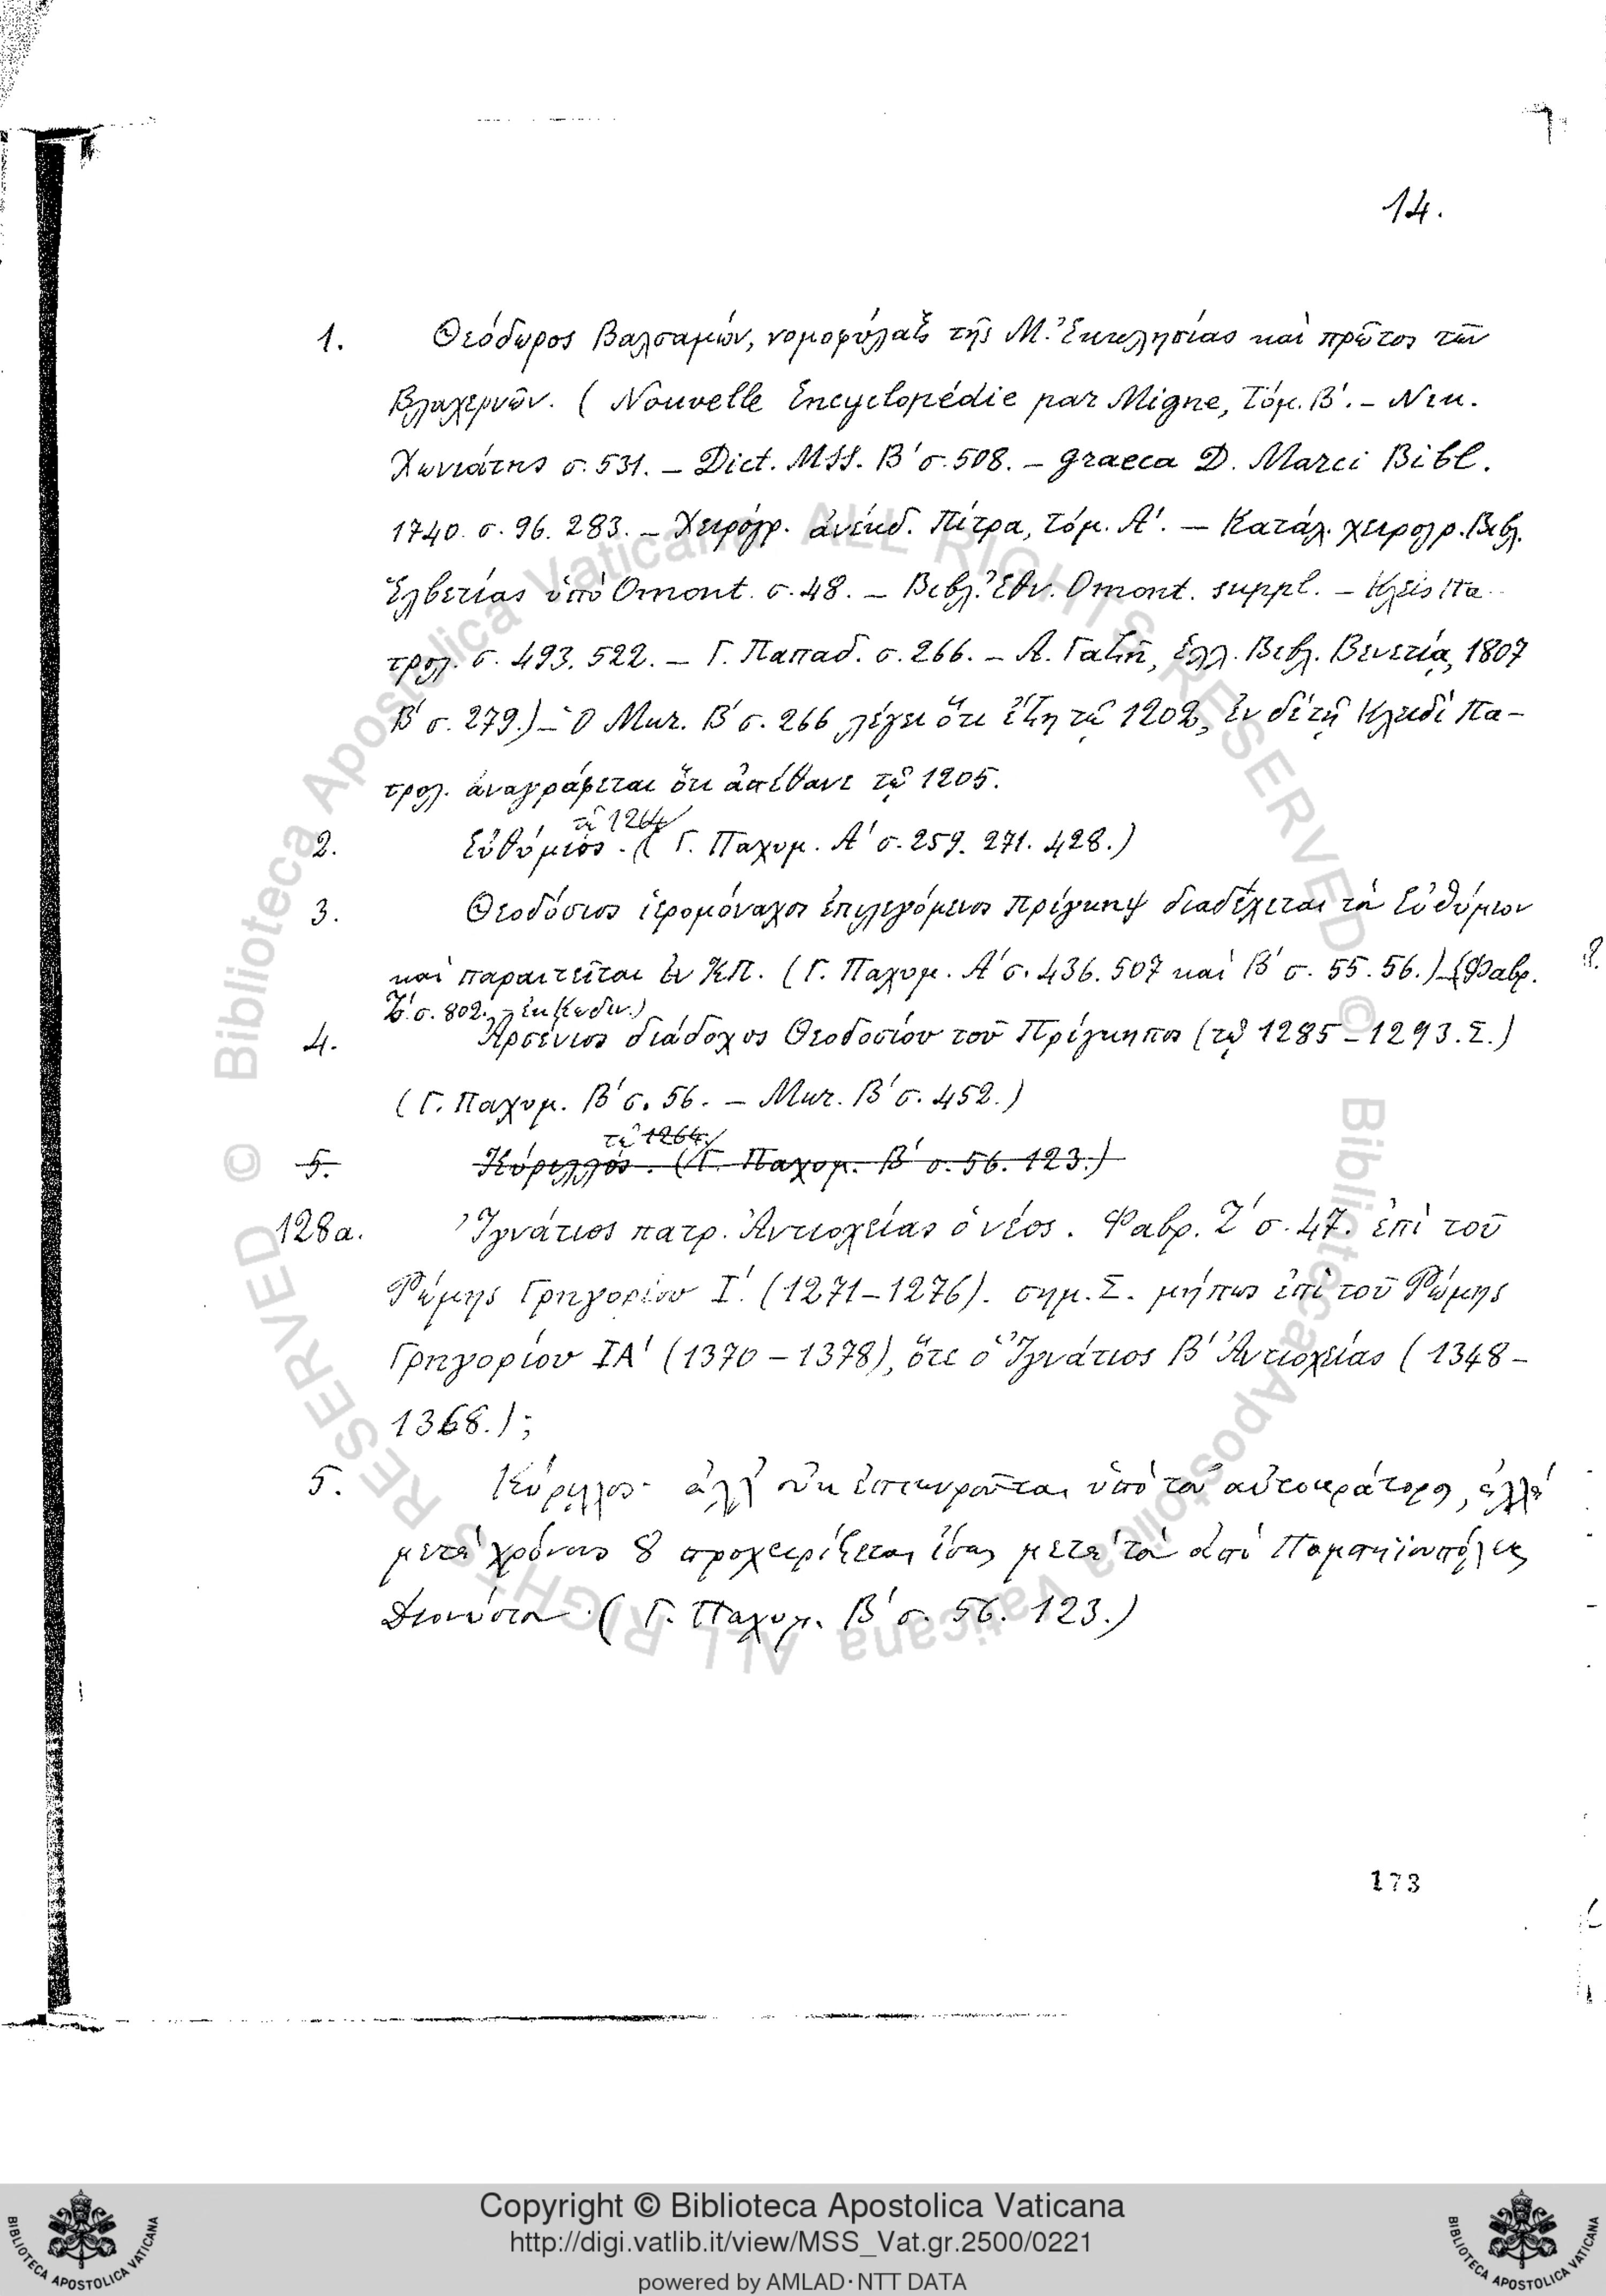 14.
1. Θεόδωρος Βαλσαμών, νομοφύλαξ τῆς Μ. Ἐκκλησίας καὶ πρῶτος τῶν
Βλαχερνῶν. (Nouvelle Encyclopédie par Migne, Τόμ. Β΄. – Νικ.
Χωνιάτης σ. 531. – Dict. MSS. Β΄ σ. 508. – graeca D. Marci Bibl.
1740. σ. 96. 283. – Χειρόγρ. ἀνέκδ. Πίτρα, Τόμ. Α΄. – Κατάλ. χειρογρ. Βιβλ.
Ἑλβετίας ὑπὸ Omont. σ. 48. – Βιβλ. Ἐθν. Omont. suppl. – Κλεὶς Πα-
τρολ. σ. 493. 522. – Γ. Παπαδ. σ. 266. – Α. Γαζῆ, Ἑλλ. Βιβλ. Βενετίᾳ, 1807
Β΄ σ. 279.) – Ὁ Μur. Β΄ σ. 266 λέγει ὅτι ἔζη τῷ 1202, ἐν δὲ τῇ Κλειδὶ Πα-
τρολ. ἀναγράφεται ὅτι ἀπέθανε τῷ 1205.
τῷ 1264
2. Εὐθύμιος. (Γ. Παχυμ. Α΄ σ. 259. 271. 428.)
3. Θεοδόσιος ἱερομόναχος ἐπιλεγόμενος Πρίγκηψ διαδέχεται τὸν Εὐθύμιον
καὶ παραιτεῖται ἐν ΚΠ. (Γ. Παχυμ. Α΄ σ. 436. 507 καὶ Β΄ σ. 55. 56.) – (Φαβρ.
Ζ΄. σ. 802. ἐκ Κωδιν.)
4. Ἀρσένιος διάδοχος Θεοδοσίου τοῦ Πρίγκηπος (τῷ 1285 – 1293. Σ.)
(Γ. Παχυμ. Β΄ σ. 56. – Μur. Β΄ σ. 452.)
τῷ 1264.
5. Κύριλλος. (Γ. Παχυμ. Β΄ σ. 56. 123.)
128a. Ἰγνάτιος πατρ. Ἀντιοχείας ὁ νέος. Φαβρ. Ζ΄ σ. 47. ἐπὶ τοῦ
Ῥώμης Γρηγορίου Ι΄. (1271–1276). σημ. Σ. μήπως ἐπὶ τοῦ Ῥώμης
Γρηγορίου ΙΑ΄ (1370 – 1378), ὅτε ὁ Ἰγνάτιος Β΄ Ἀντιοχείας (1348 –
1368.);
5. Κύριλλος· ἀλλ' οὐκ ἐπικυροῦται ὑπὸ τοῦ αὐτοκράτορος, ἀλλὰ
μετὰ χρόνους 8 προχειρίζεται μετὰ τὸν ἀπὸ Πομπηϊουπόλεως
Διονύσιον (Γ. Παχυμ. Β΄ σ. 56. 123.)
173
Copyright © Biblioteca Apostolica Vaticana
http://digi.vatlib.it/view/MSS_Vat.gr.2500/0221
powered by AMLAD·NTT DATA
BIBLIOTECA APOSTOLICA VATICANA
BIBLIOTECA APOSTOLICA VATICANA
© Biblioteca Apostolica Vaticana ALL RIGHTS RESERVED
© Biblioteca Apostolica Vaticana ALL RIGHTS RESERVED